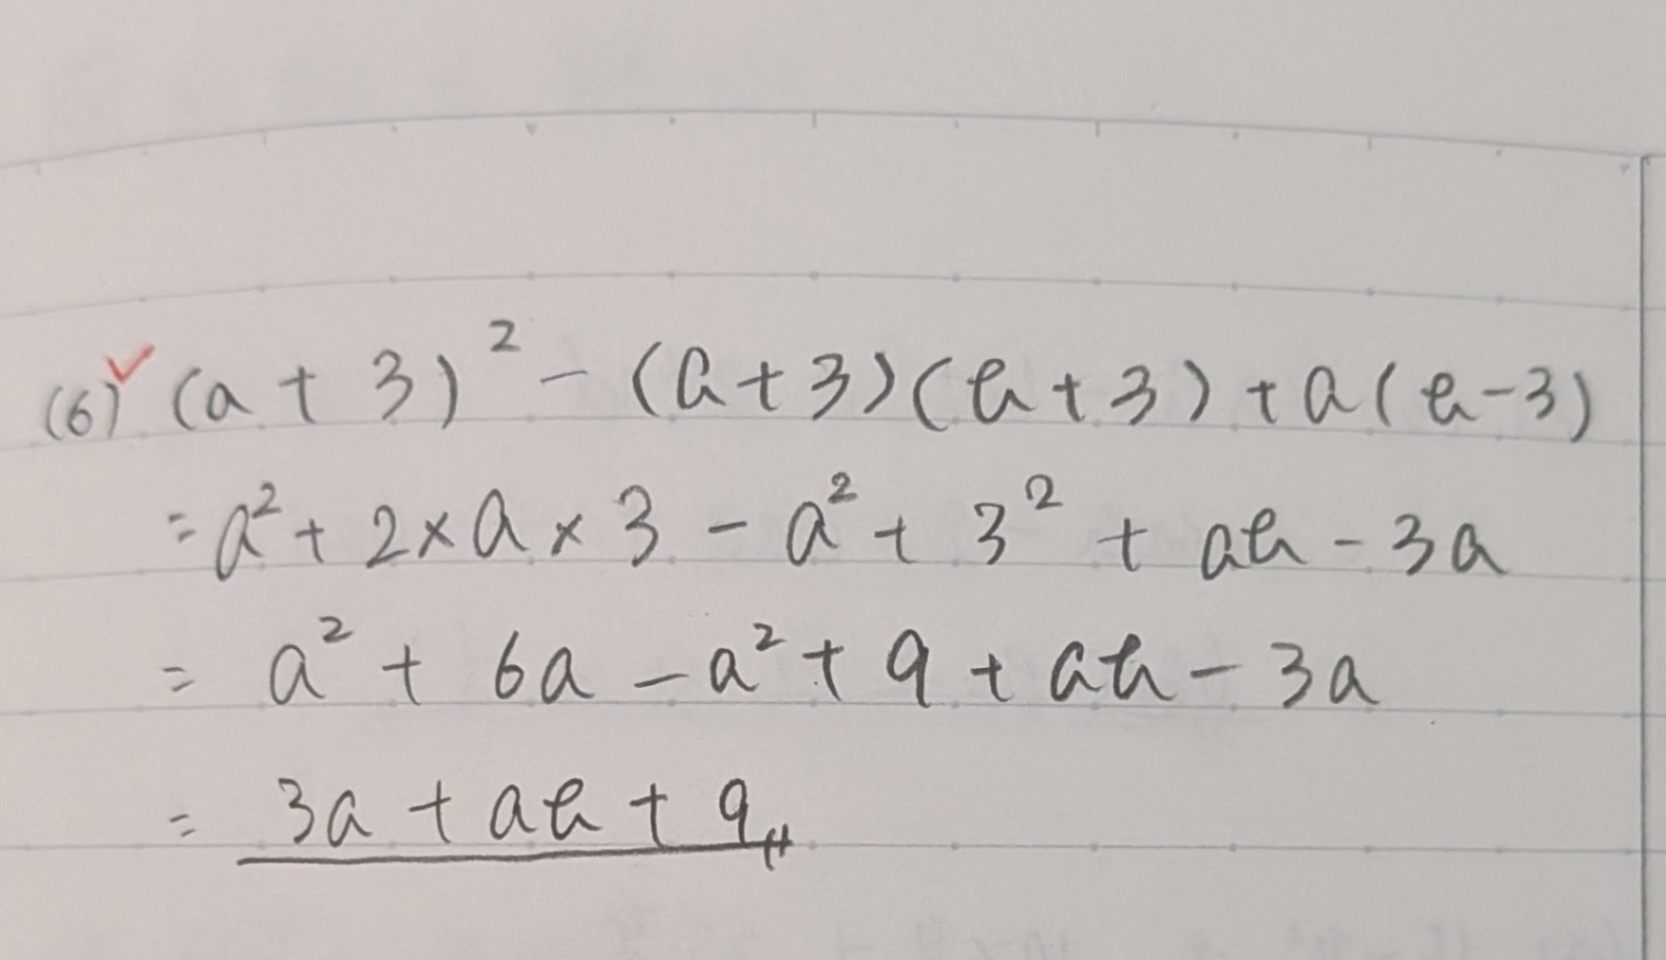 (6) (a + 3)² - (a + 3)(h + 3) + a(h - 3)
= a² + 2 × a × 3 - a² + 3² + ah - 3a
= a² + 6a - a² + 9 + ah - 3a
= 3a + ah + 9